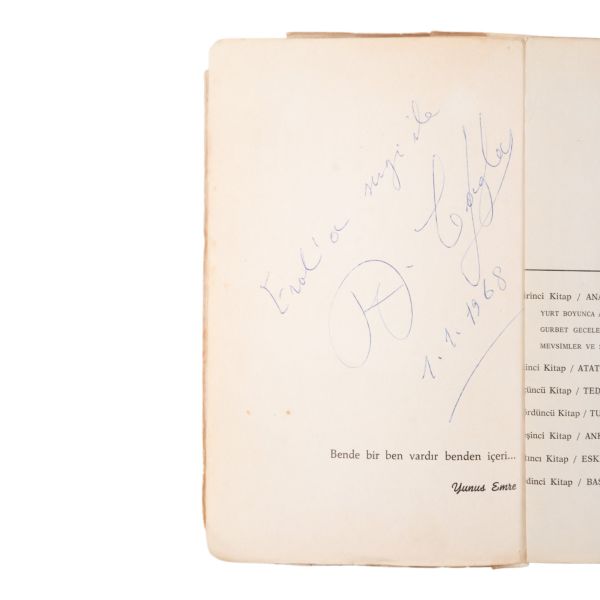 Erol'a sevgi ile
1.1.1968
Bende bir ben vardır benden içeri...
Yunus Emre
irinci Kitap / ANA
YURT BOYUNCA A
GURBET GECELE
MEVSİMLER VE
inci Kitap / ATAT
üncü Kitap / TED
ördüncü Kitap / TU
eşinci Kitap / ANK
tıncı Kitap / ESK
edinci Kitap / BAS